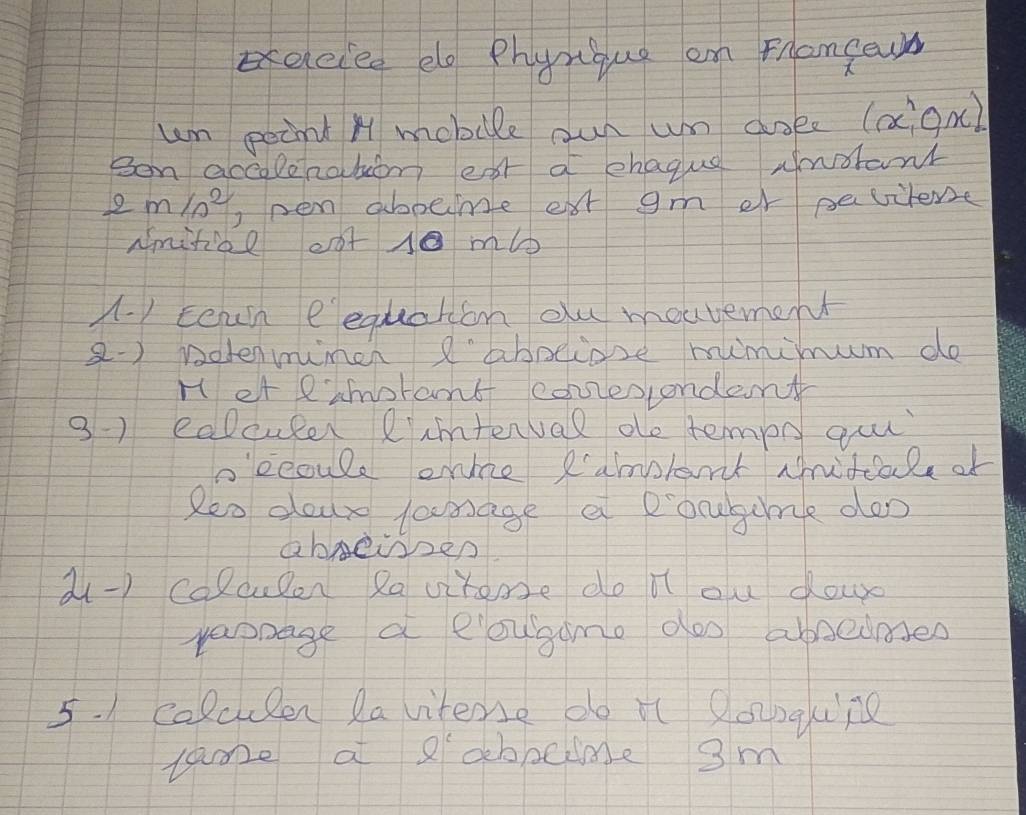 Exercice de Physique en Français
un point M mobile sur un axe (x'Ox)
Son accélération est à chaque instant
2 m/s², son abscisse est 9m et sa vitesse
initial est 10 m/s
1-) Ecrir l'equation du mouvement
2-) Determiner l'abscisse minimum de
M et l'instant correspondant
3-) Calculer l'interval de temps qui
s'écoule entre l'instant initiale et
les deux passage à l'origine des
abscisses
4-) Calculer la vitesse de M au deux
passage à l'origine des abscisses
5-) Calculer la vitesse de M lorsqu'il
passe à l'abscisse 3m